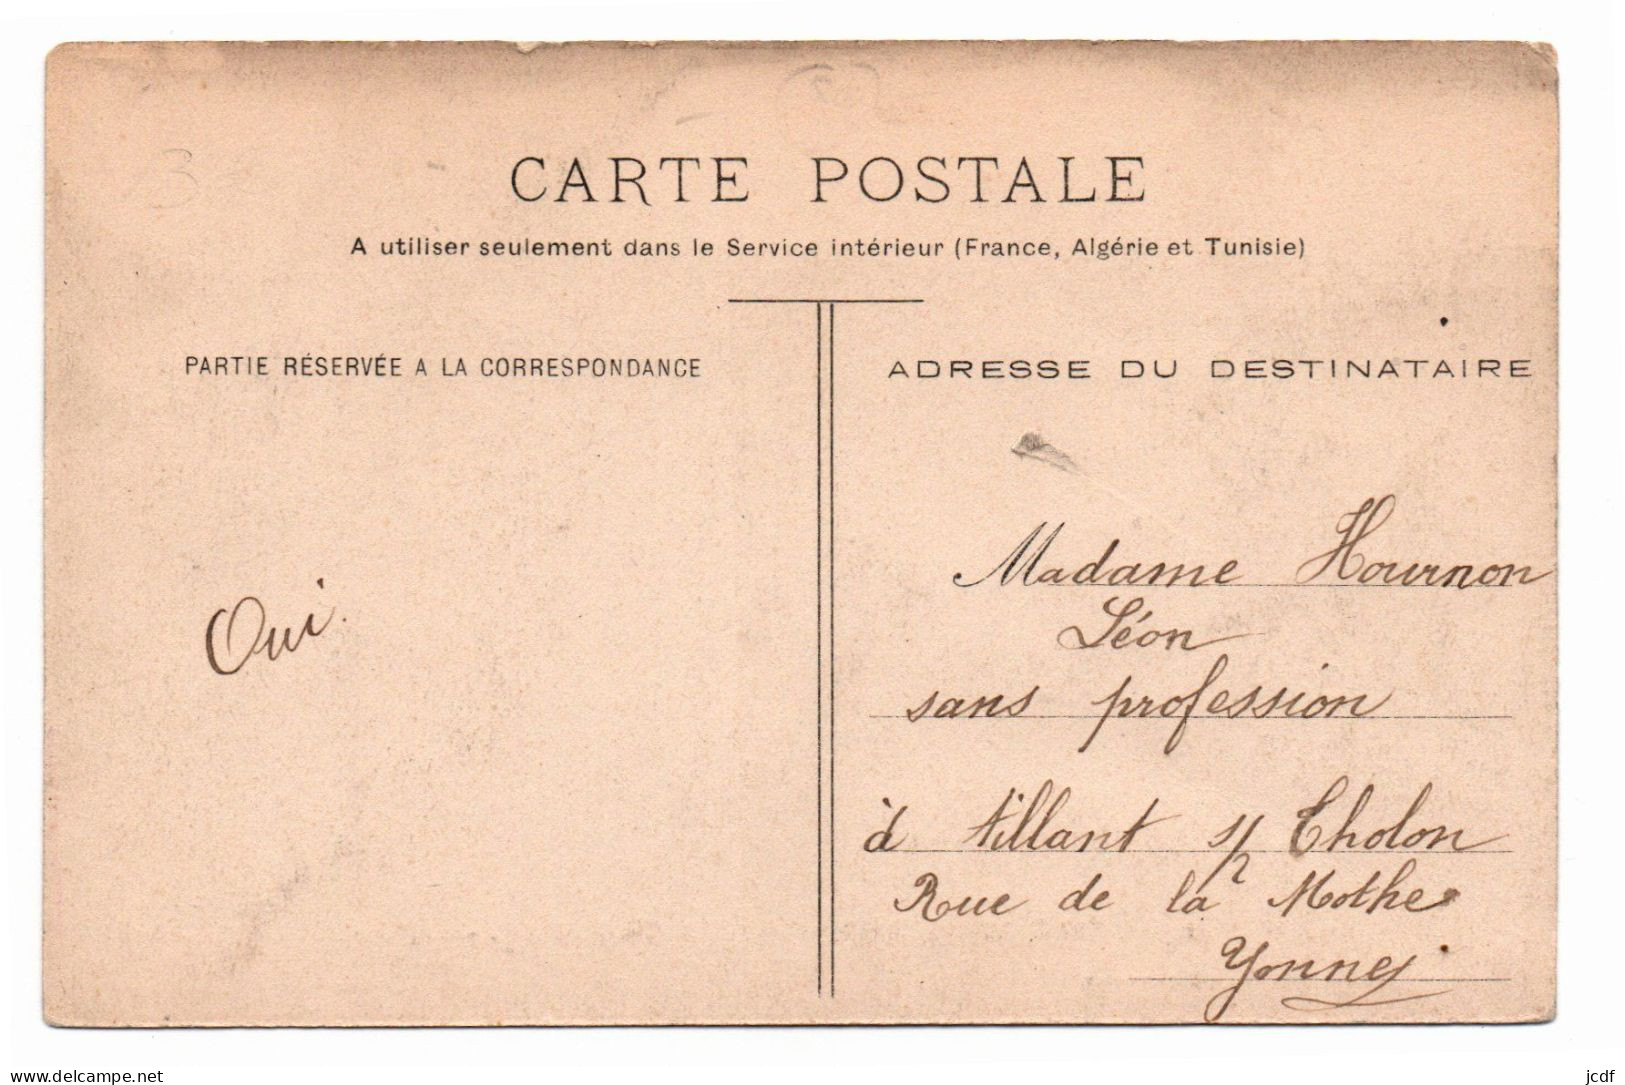 CARTE POSTALE
A utiliser seulement dans le Service intérieur (France, Algérie et Tunisie)
PARTIE RÉSERVÉE A LA CORRESPONDANCE
Oui.
ADRESSE DU DESTINATAIRE
Madame Hournon
Léon
sans profession
à Aillant s/ Tholon
Rue de la Mothe
Yonne
www.delcampe.net
jcdf
3